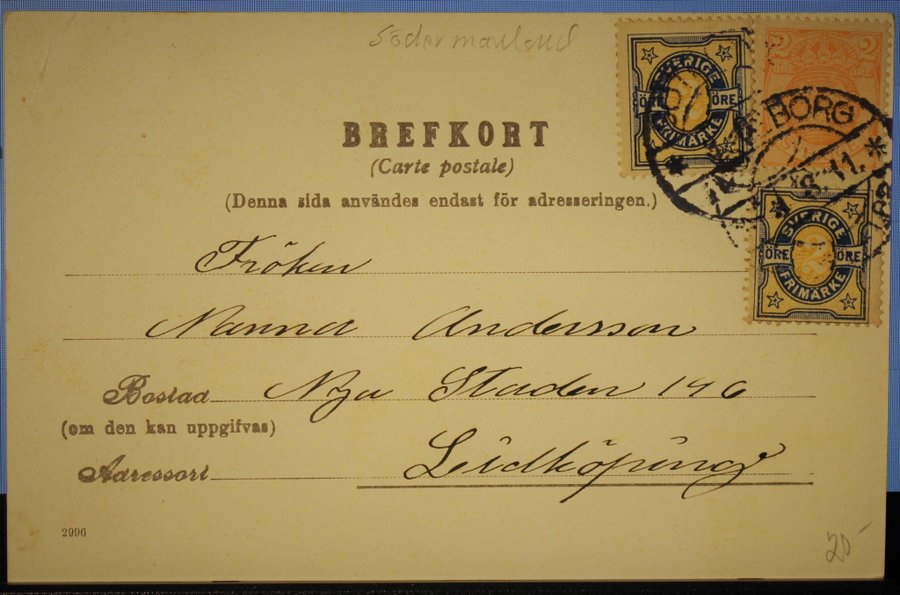 Södermanland
SVERIGE
ÖRE ÖRE
FRIMÄRKE
2 2
BORG
8.11.
BREFKORT
(Carte postale)
(Denna sida användes endast för adresseringen.)
SVERIGE
ÖRE ÖRE
FRIMÄRKE
Fröken
Nanna Andersson
Bostad Nya Staden 146
(om den kan uppgifvas)
Adressort Lidköping
2996
20